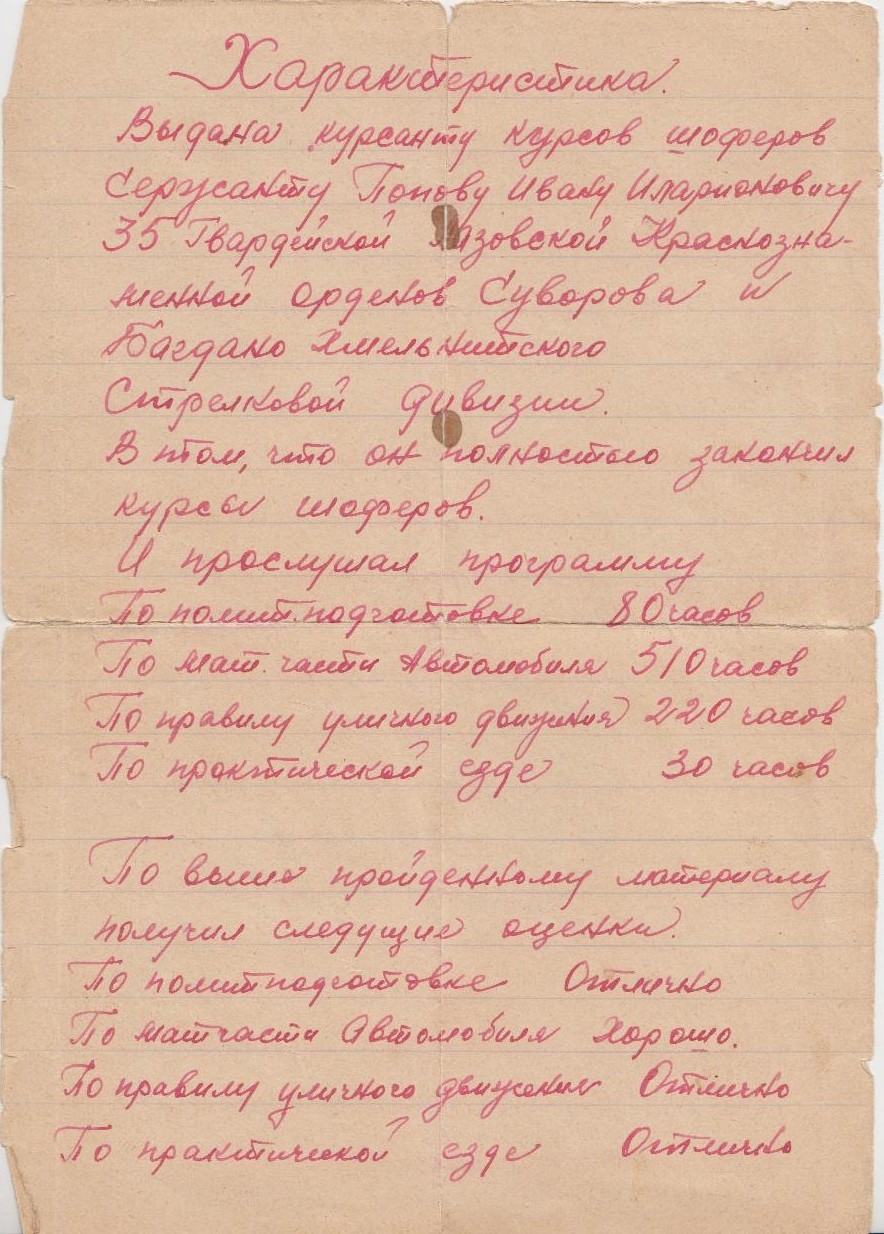 Характеристика.
Выдана курсанту курсов шоферов
Сержанту Попову Ивану Иларионовичу
35 Гвардейской Лозовской Краснозна-
менной орденов Суворова и
Богдано Хмельнитского
Стрелковой дивизии.
В том, что он полностью закончил
курсы шоферов.
И прослушал программу
По полит.подготовке 80 часов
По мат. части Автомобиля 510 часов
По правилу уличного движения 220 часов
По практической езде 30 часов
По выше пройденному материалу
получил следущие оценки.
По политподготовке Отлично
По матчасти Автомобиля Хорошо.
По правилу уличного движения Отлично
По практической езде Отлично